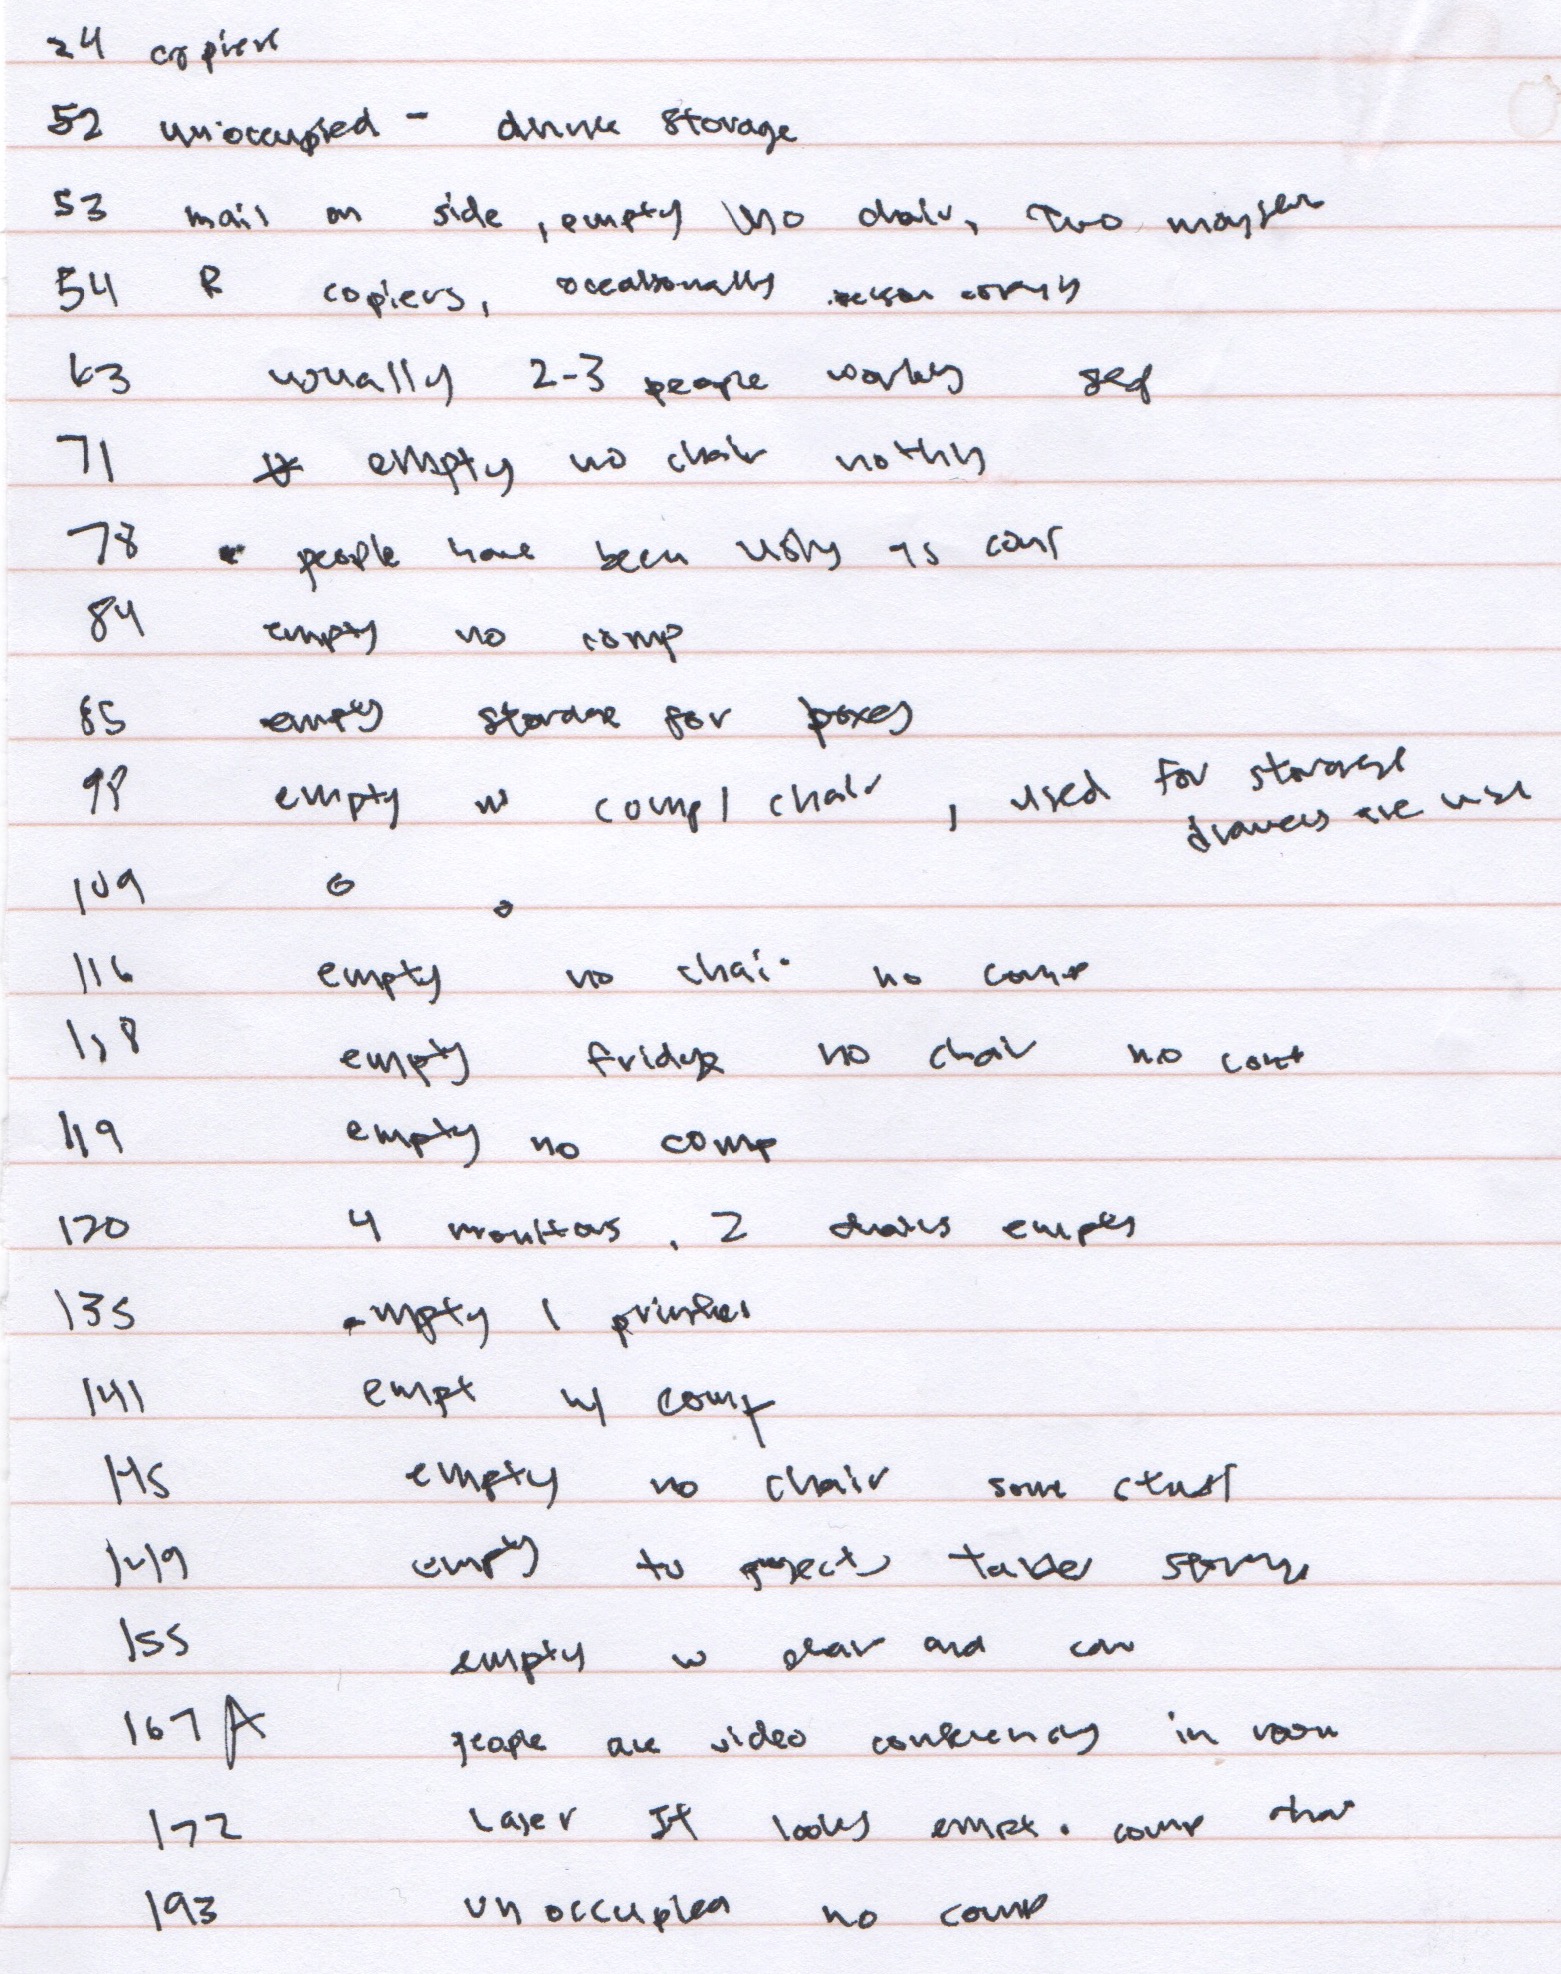 24 copiers
52 unoccupied - drink storage
53 mail on side, empty no chair, two
54 R copiers, occasionally
63 usually 2-3 people working
71 empty no chair nothing
78 people have been using as conf
84 empty no comp
85 empty storage for boxes
98 empty w comp/chair, used for storage
drawers are use
109
116 empty no chair no comp
118 empty fridge no chair no
119 empty no comp
120 4 monitors, 2 chairs empty
135 empty 1 printer
141 empt w/ comp
145 empty no chair some stuff
149 empty storage
155 empty w chair and
167A people are video conferencing in room
172 Laser It looks empt. comp chair
193 unoccupied no comp